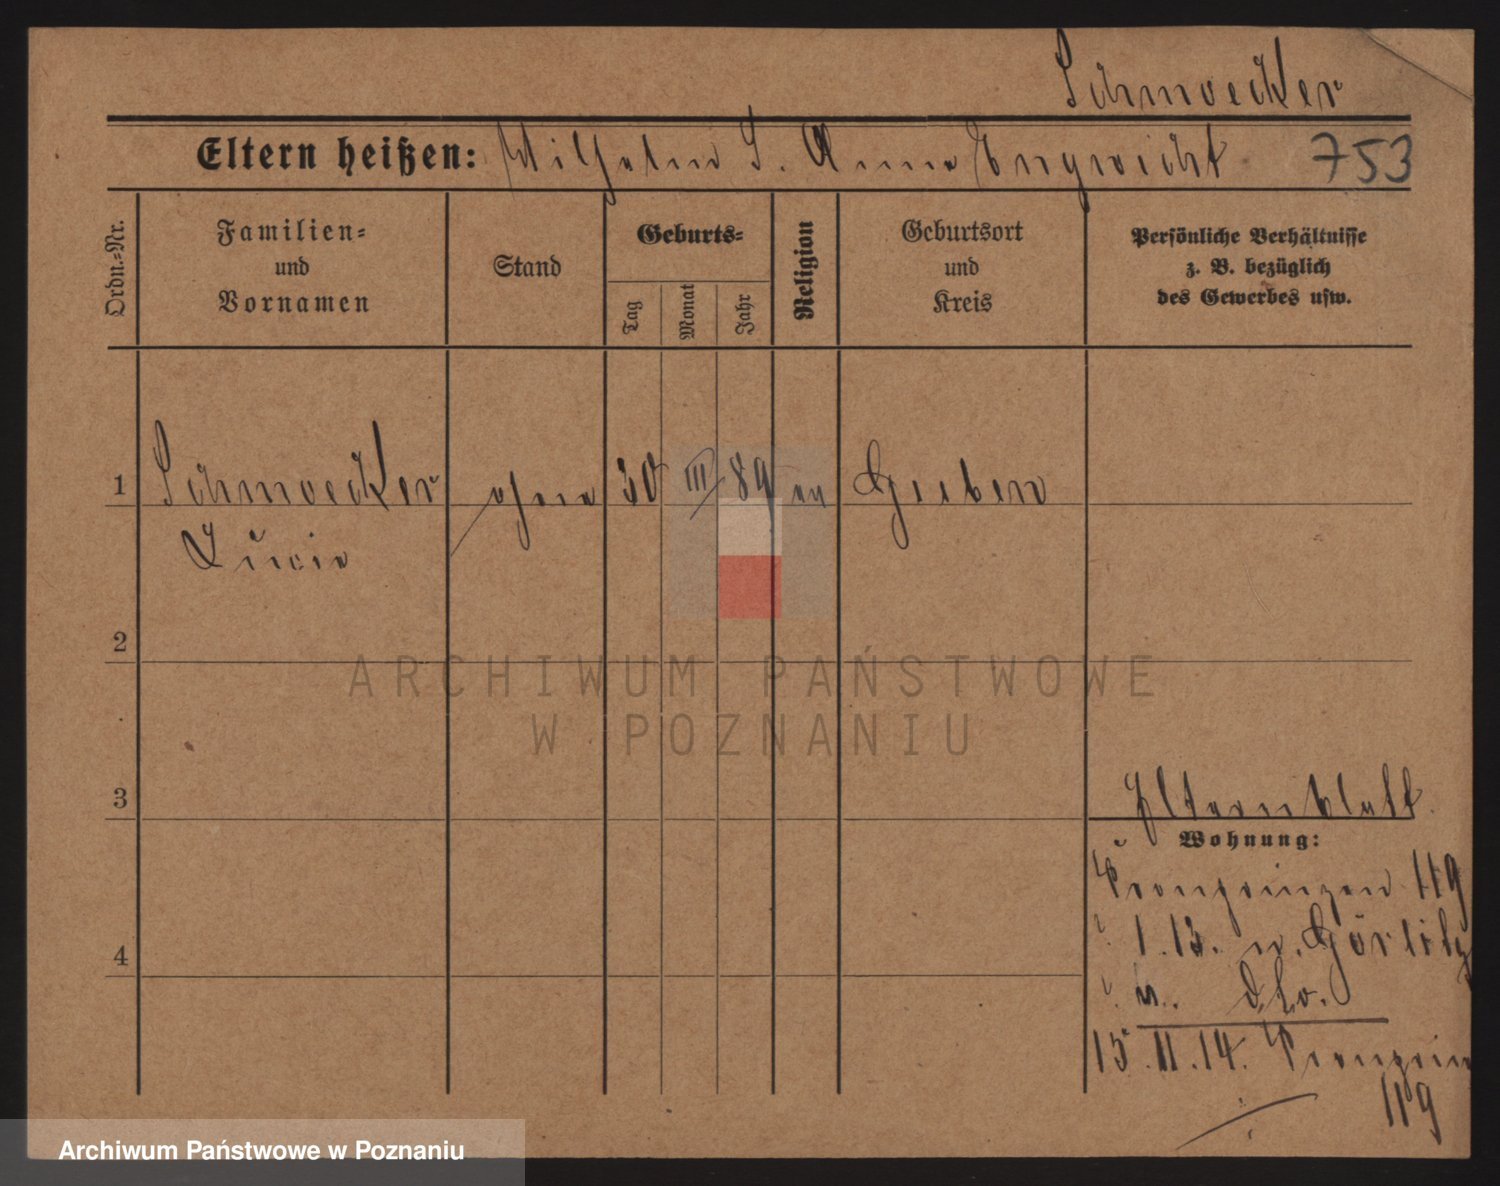 Schmoecker
Eltern heißen: Wilhelm S. Anna Engwicht 753
Ordn.-Nr.
Familien-
und
Vornamen
Stand
Geburts-
Tag
Monat
Jahr
Religion
Geburtsort
und
Kreis
Persönliche Verhältnisse
z. B. bezüglich
des Gewerbes usw.
1 Schmoecker ohne 30 III 89 ev Guben
Lucie
2
ARCHIWUM PAŃSTWOWE
W POZNANIU
3 Elternblatt
Wohnung:
Kronprinzen 119
1.13. n. Görlitz
u. dto.
4
15.II.14. Kronprin
119
Archiwum Państwowe w Poznaniu